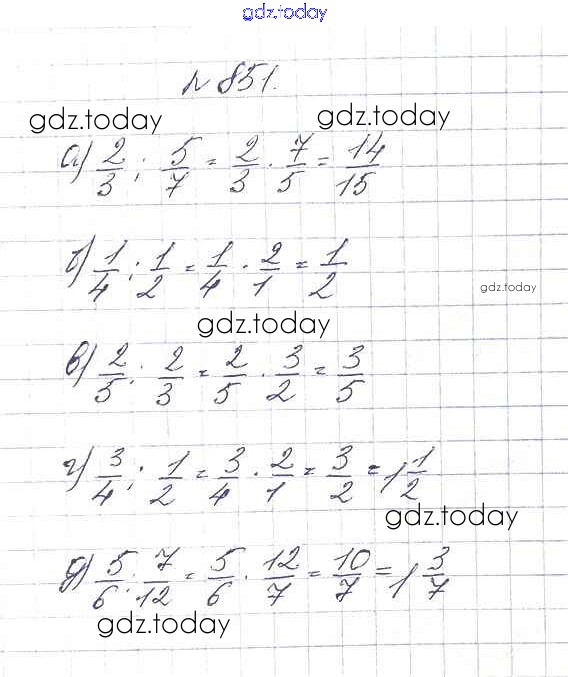 gdz.today
№ 851.
gdz.today gdz.today
а) 2/3 : 5/7 = 2/3 · 7/5 = 14/15
б) 1/4 : 1/2 = 1/4 · 2/1 = 1/2
gdz.today
gdz.today
в) 2/5 : 2/3 = 2/5 · 3/2 = 3/5
г) 3/4 : 1/2 = 3/4 · 2/1 = 3/2 = 1 1/2
gdz.today
д) 5/6 : 7/12 = 5/6 · 12/7 = 10/7 = 1 3/7
gdz.today